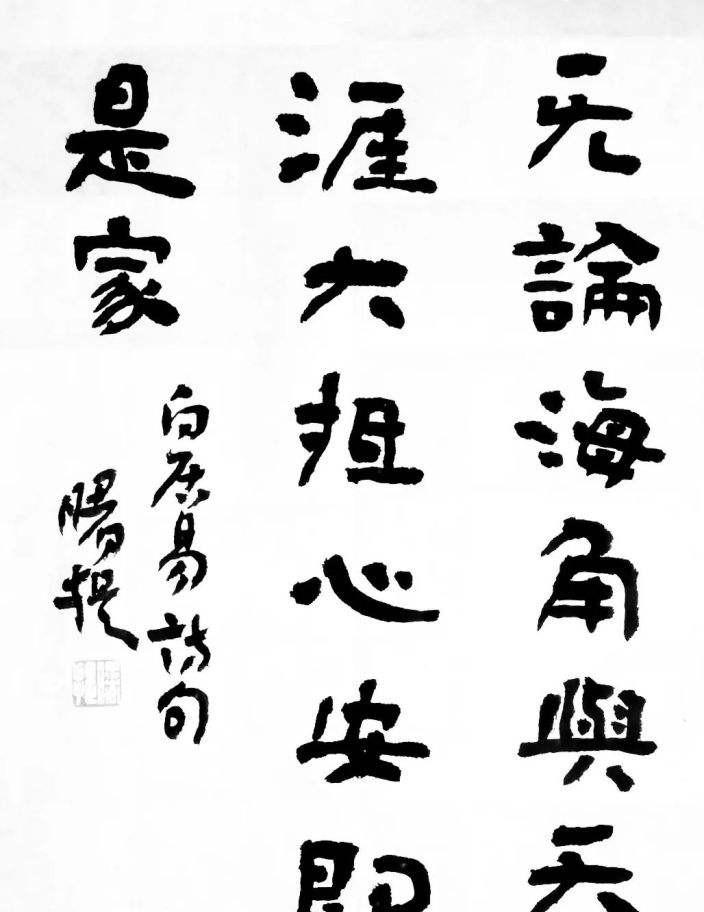 无論海角與天
涯大抵心安即
是家
白居易詩句
曙提